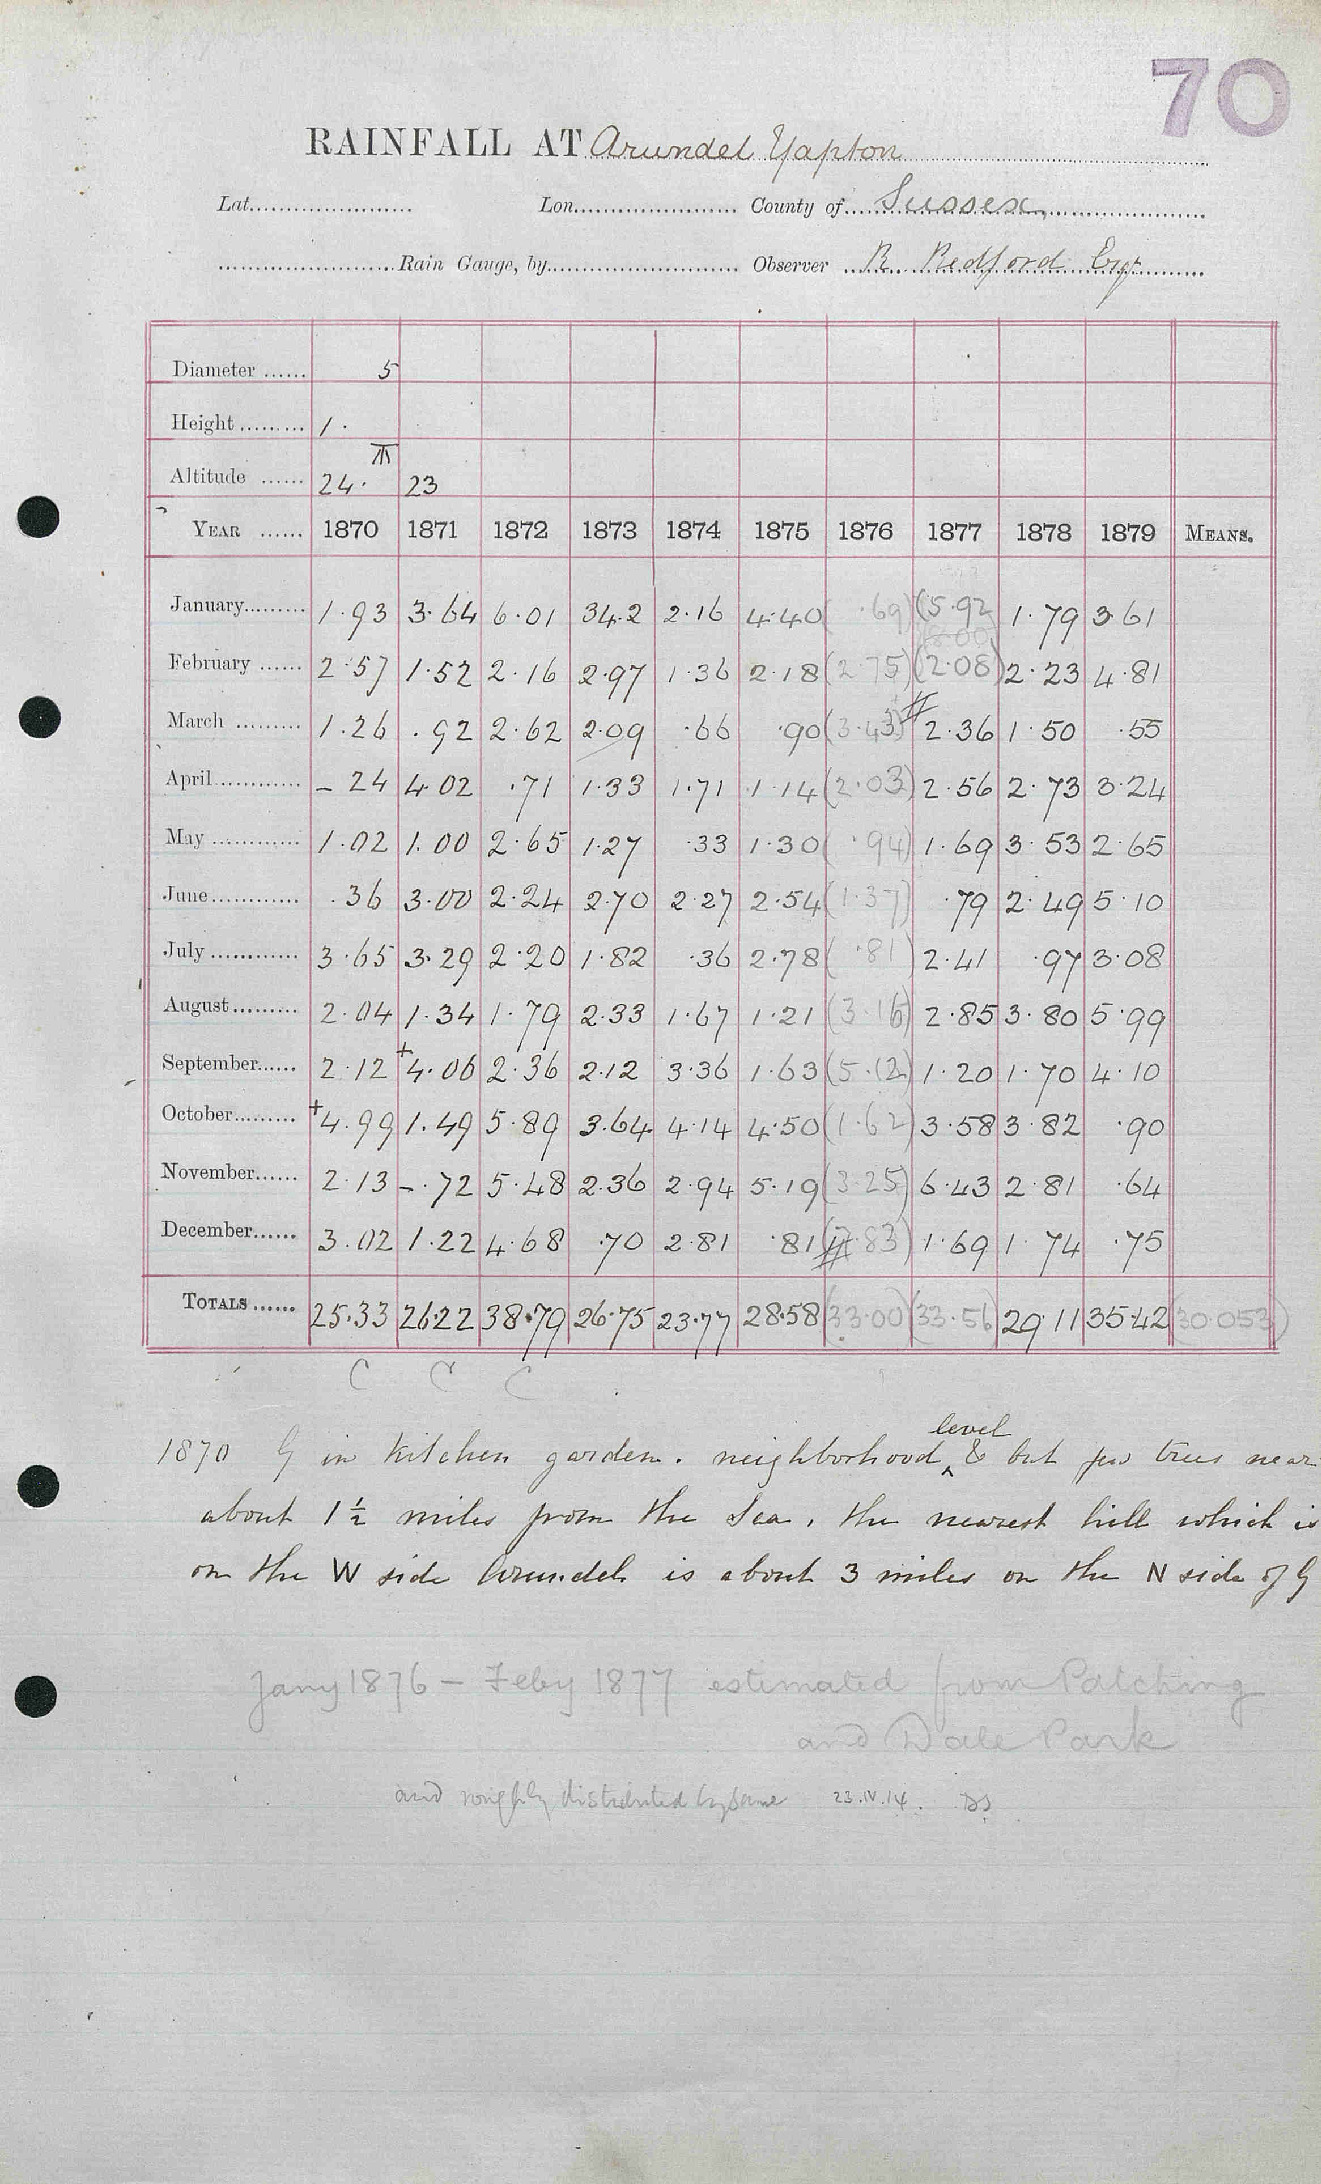 70
RAINFALL AT Arundel Yapton
Lat. Lon. County of Sussex
Rain Gauge, by Observer R. Redford Esqr
Diameter 5
Height 1.
Altitude 24. 23
YEAR 1870 1871 1872 1873 1874 1875 1876 1877 1878 1879 MEANS.
January 1.93 3.64 6.01 34.2 2.16 4.40 (.69) (5.92 1.79 3.61
February 2.57 1.52 2.16 2.97 1.36 2.18 (2.75) (2.08) 2.23 4.81
March 1.26 .92 2.62 2.09 .66 .90 (3.43) 2.36 1.50 .55
April – 24 4.02 .71 1.33 1.71 1.14 (2.03) 2.56 2.73 3.24
May 1.02 1.00 2.65 1.27 .33 1.30 (.94) 1.69 3.53 2.65
June .36 3.00 2.24 2.70 2.27 2.54 (1.37) .79 2.49 5.10
July 3.65 3.29 2.20 1.82 .36 2.78 (.81) 2.41 .97 3.08
August 2.04 1.34 1.79 2.33 1.67 1.21 (3.16) 2.85 3.80 5.99
September 2.12 +4.06 2.36 2.12 3.36 1.63 (5.12) 1.20 1.70 4.10
October +4.99 1.49 5.89 3.64 4.14 4.50 (1.62) 3.58 3.82 .90
November 2.13 – .72 5.48 2.36 2.94 5.19 (3.25) 6.43 2.81 .64
December 3.02 1.22 4.68 .70 2.81 .81 (7.83) 1.69 1.74 .75
TOTALS 25.33 26.22 38.79 26.75 23.77 28.58 (33.00) (33.56) 29.11 35.42 (30.053)
C C C
1870 G in kitchen garden. neighborhood level & but few trees near
about 1½ miles from the Sea, the nearest hill which is
on the W side Arundel is about 3 miles on the N side of G
Jany 1876 – Feby 1877 estimated from Patching
and Dale Park
and roughly distributed by same 23.IV.14.